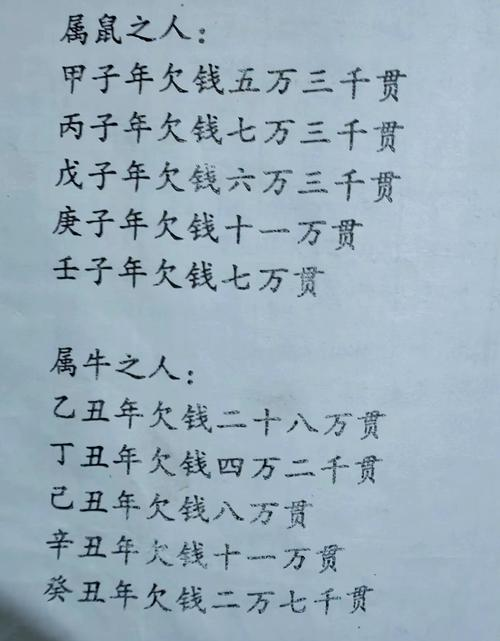 属鼠之人：
甲子年欠钱五万三千贯
丙子年欠钱七万三千贯
戊子年欠钱六万三千贯
庚子年欠钱十一万贯
壬子年欠钱七万贯
属牛之人：
乙丑年欠钱二十八万贯
丁丑年欠钱四万二千贯
己丑年欠钱八万贯
辛丑年欠钱十一万贯
癸丑年欠钱二万七千贯